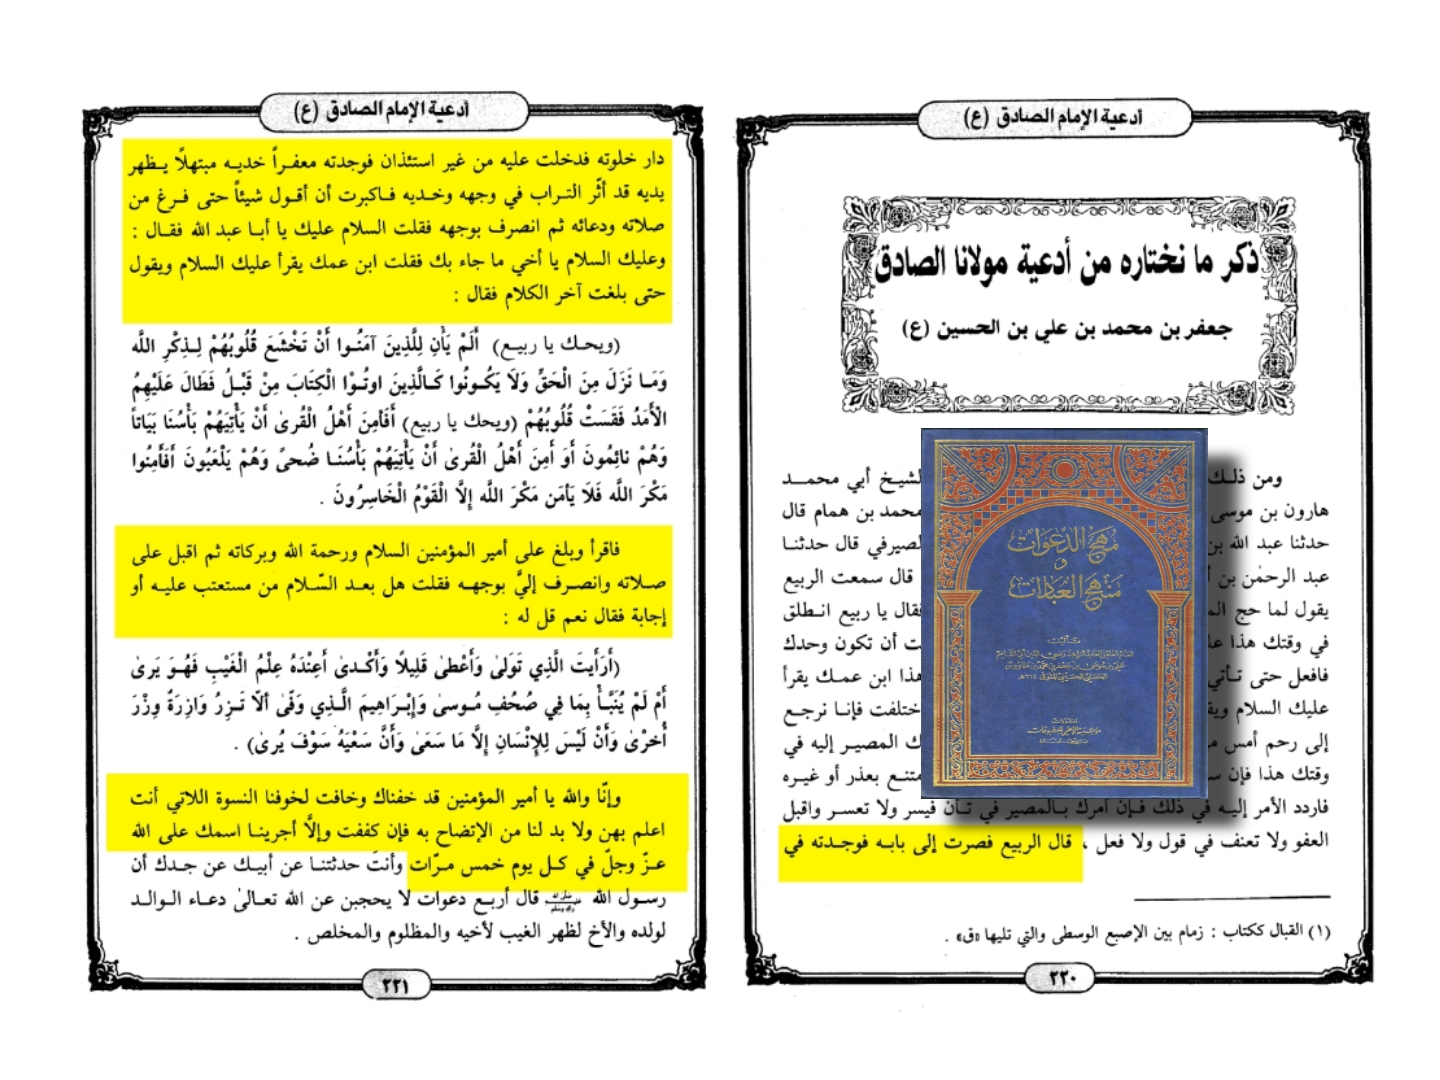 أدعية الإمام الصادق (ع)
ذكر ما نختاره من أدعية مولانا الصادق
جعفر بن محمد بن علي بن الحسين (ع)
ومن ذلك
لشيخ أبي محمد
هارون بن موسى
محمد بن همام قال
حدثنا عبد الله بن
لصيرفي قال حدثنا
عبد الرحمٰن بن أ
قال سمعت الربيع
يقول لما حج الم
فقال يا ربيع انطلق
في وقتك هذا عل
ت أن تكون وحدك
فافعل حتى تأتي
هذا ابن عمك يقرأ
عليك السلام ويق
ختلفت فإنا نرجع
إلى رحم أمس م
ك المصير إليه في
وقتك هذا فإن س
متنع بعذر أو غيره
فاردد الأمر إليه في ذلك فإن أمرك بالمصير في تأن فيسر ولا تعسر واقبل
العفو ولا تعنف في قول ولا فعل ، قال الربيع فصرت إلى بابه فوجدته في
(١) القبال ككتاب : زمام بين الإصبع الوسطى والتي تليها «ق» .
٢٢٠
مهج الدعوات
و
منهج العبادات
تأليف
أدعية الإمام الصادق (ع)
دار خلوته فدخلت عليه من غير استئذان فوجدته معفراً خديه مبتهلاً يظهر
يديه قد أثّر التراب في وجهه وخديه فاكبرت أن أقول شيئاً حتى فرغ من
صلاته ودعائه ثم انصرف بوجهه فقلت السلام عليك يا أبا عبد الله فقال :
وعليك السلام يا أخي ما جاء بك فقلت ابن عمك يقرأ عليك السلام ويقول
حتى بلغت آخر الكلام فقال :
(ويحك يا ربيع) أَلَمْ يَأْنِ لِلَّذِينَ آمَنُوا أَنْ تَخْشَعَ قُلُوبُهُمْ لِذِكْرِ اللَّه
وَمَا نَزَلَ مِنَ الْحَقِّ وَلَا يَكُونُوا كَالَّذِينَ اوتُوْا الْكِتَابَ مِنْ قَبْلُ فَطَالَ عَلَيْهِمُ
الْأَمَدُ فَقَسَتْ قُلُوبُهُمْ (ويحك يا ربيع) أَفَأَمِنَ أَهْلُ الْقُرىٰ أَنْ يَأْتِيَهُمْ بَأْسُنَا بَيَاتاً
وَهُمْ نائِمُونَ أَوَ أَمِنَ أَهْلُ الْقُرىٰ أَنْ يَأْتِيَهُمْ بَأْسُنَا ضُحىً وَهُمْ يَلْعَبُونَ أَفَأَمِنُوا
مَكْرَ اللَّه فَلَا يَأمَن مَكْرَ اللَّه إِلَّا الْقَوْمُ الْخَاسِرُونَ .
فاقرأ وبلغ على أمير المؤمنين السلام ورحمة الله وبركاته ثم اقبل على
صلاته وانصرف إليَّ بوجهه فقلت هل بعد السّلام من مستعتب عليه أو
إجابة فقال نعم قل له :
(أَرَأَيتَ الَّذِي تَوَلىٰ وَأَعْطىٰ قَلِيلًا وَأَكْدىٰ أَعِنْدَهُ عِلْمُ الْغَيْبِ فَهُوَ يَرىٰ
أَمْ لَمْ يُنَبَّأْ بِمَا فِي صُحُفِ مُوسىٰ وَإِبْرَاهِيمَ الَّذِي وَفّىٰ أَلاّ تَزِرُ وَازِرَةٌ وِزْرَ
أُخْرىٰ وَأَنْ لَيْسَ لِلإِنْسَانِ إِلَّا مَا سَعَىٰ وَأَنَّ سَعْيَهُ سَوْفَ يُرىٰ) .
وإنّا والله يا أمير المؤمنين قد خفناك وخافت لخوفنا النسوة اللاتي أنت
اعلم بهن ولا بد لنا من الإتضاح به فإن كففت وإلَّا أجرينا اسمك على الله
عزّ وجلّ في كل يوم خمس مرّات وأنت حدثتنا عن أبيك عن جدك أن
رسول الله صلى الله عليه وآله وسلم قال أربع دعوات لا يحجبن عن الله تعالىٰ دعاء الوالد
لولده والأخ لظهر الغيب لأخيه والمظلوم والمخلص .
٢٢١